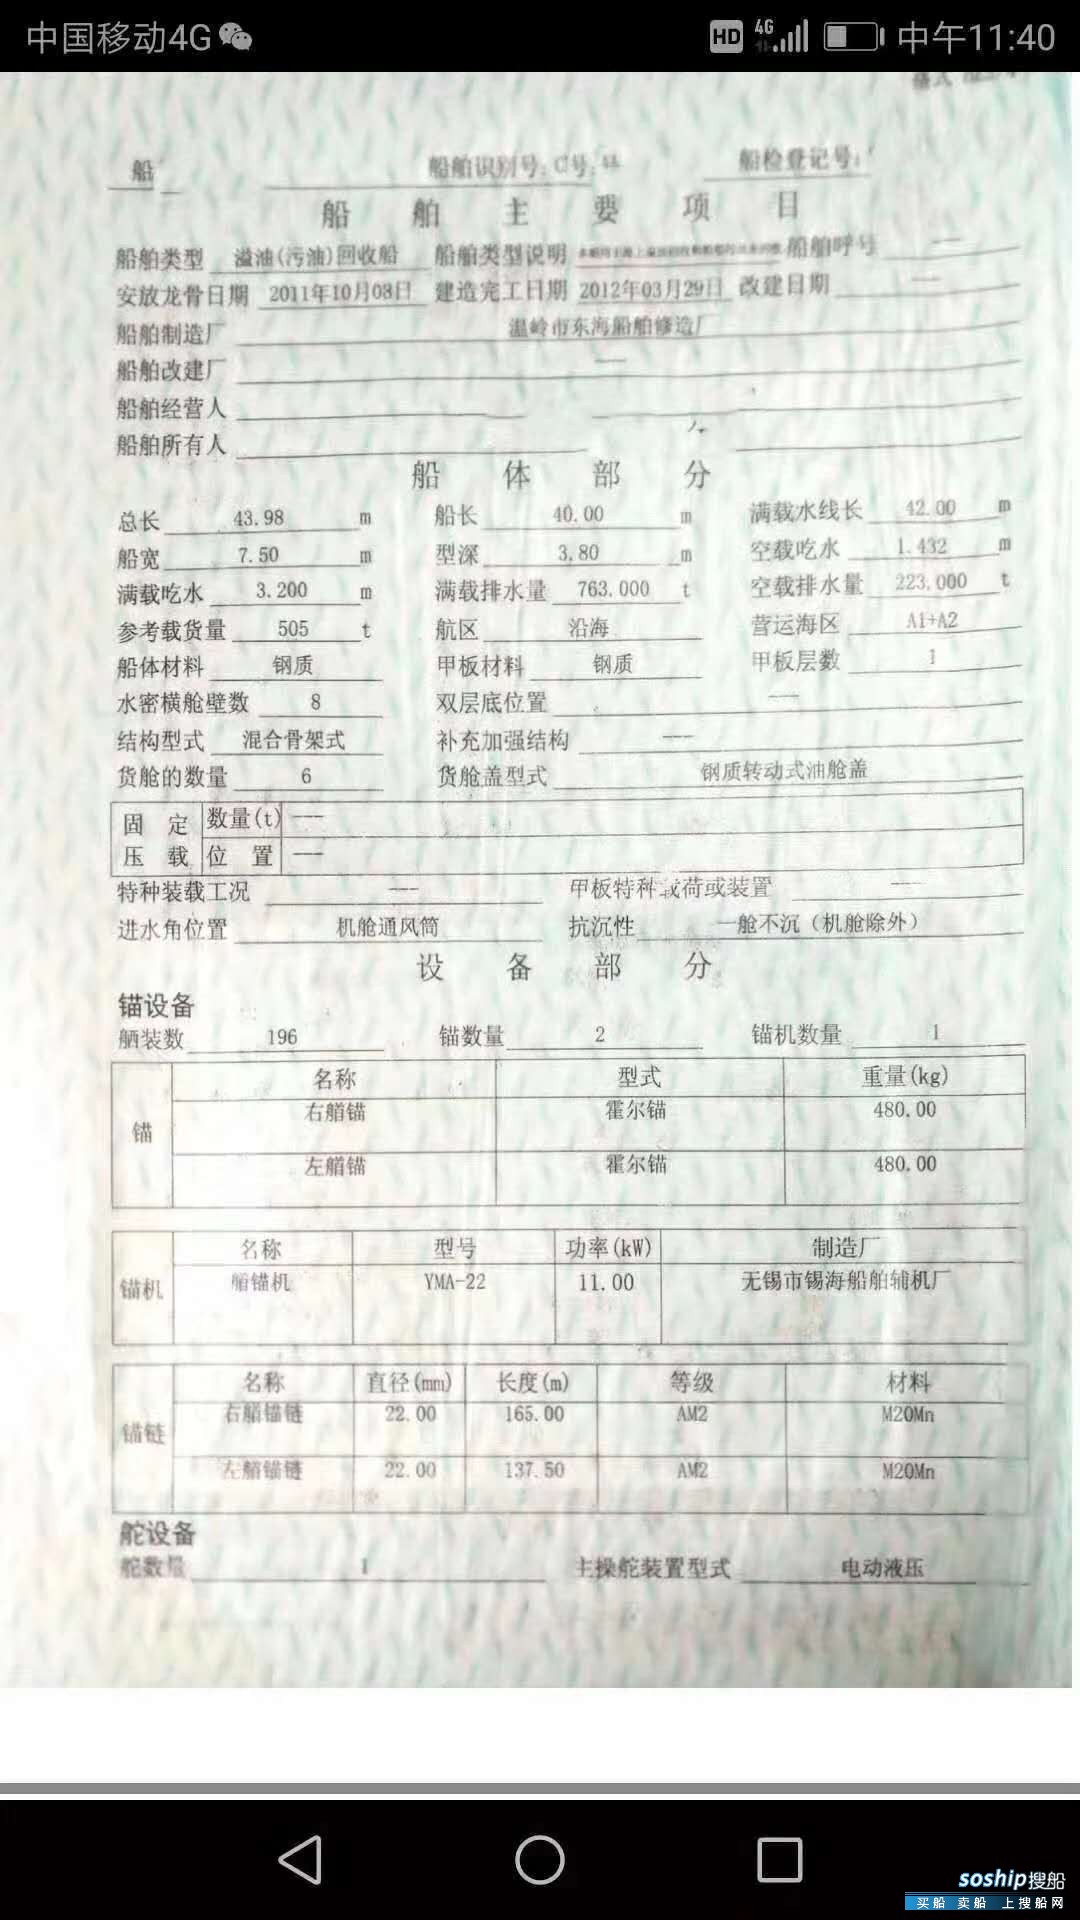 中国移动4G HD 4G 中午11:40
船 船舶识别号: 船检登记号:
船舶主要项目
船舶类型 溢油(污油)回收船 船舶类型说明 船舶呼号 ---
安放龙骨日期 2011年10月08日 建造完工日期 2012年03月29日 改建日期 ---
船舶制造厂 温岭市东海船舶修造厂
船舶改建厂 ---
船舶经营人
船舶所有人
船体部分
总长 43.98 m 船长 40.00 m 满载水线长 42.00 m
船宽 7.50 m 型深 3.80 m 空载吃水 1.432 m
满载吃水 3.200 m 满载排水量 763.000 t 空载排水量 223.000 t
参考载货量 505 t 航区 沿海 营运海区 A1+A2
船体材料 钢质 甲板材料 钢质 甲板层数 1
水密横舱壁数 8 双层底位置 ---
结构型式 混合骨架式 补充加强结构 ---
货舱的数量 6 货舱盖型式 钢质转动式油舱盖
固定 数量(t) ---
压载 位置 ---
特种装载工况 --- 甲板特种载荷或装置 ---
进水角位置 机舱通风筒 抗沉性 一舱不沉（机舱除外）
设备部分
锚设备
舾装数 196 锚数量 2 锚机数量 1
名称 型式 重量(kg)
锚
右艏锚 霍尔锚 480.00
左艏锚 霍尔锚 480.00
名称 型号 功率(kW) 制造厂
锚机 艏锚机 YMA-22 11.00 无锡市锡海船舶辅机厂
名称 直径(mm) 长度(m) 等级 材料
锚链
右艏锚链 22.00 165.00 AM2 M20Mn
左艏锚链 22.00 137.50 AM2 M20Mn
舵设备
舵数量 1 主操舵装置型式 电动液压
soship搜船
买船 卖船 上搜船网